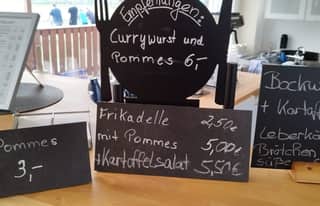 Empfehlungen:
Currywurst und
Pommes 6,-
Frikadelle 2,50€
mit Pommes 5,00€
+Kartoffelsalat 5,50€
Pommes
3,-
Bockwu
+ Kartof
Leberkä
Brötchen,
süße